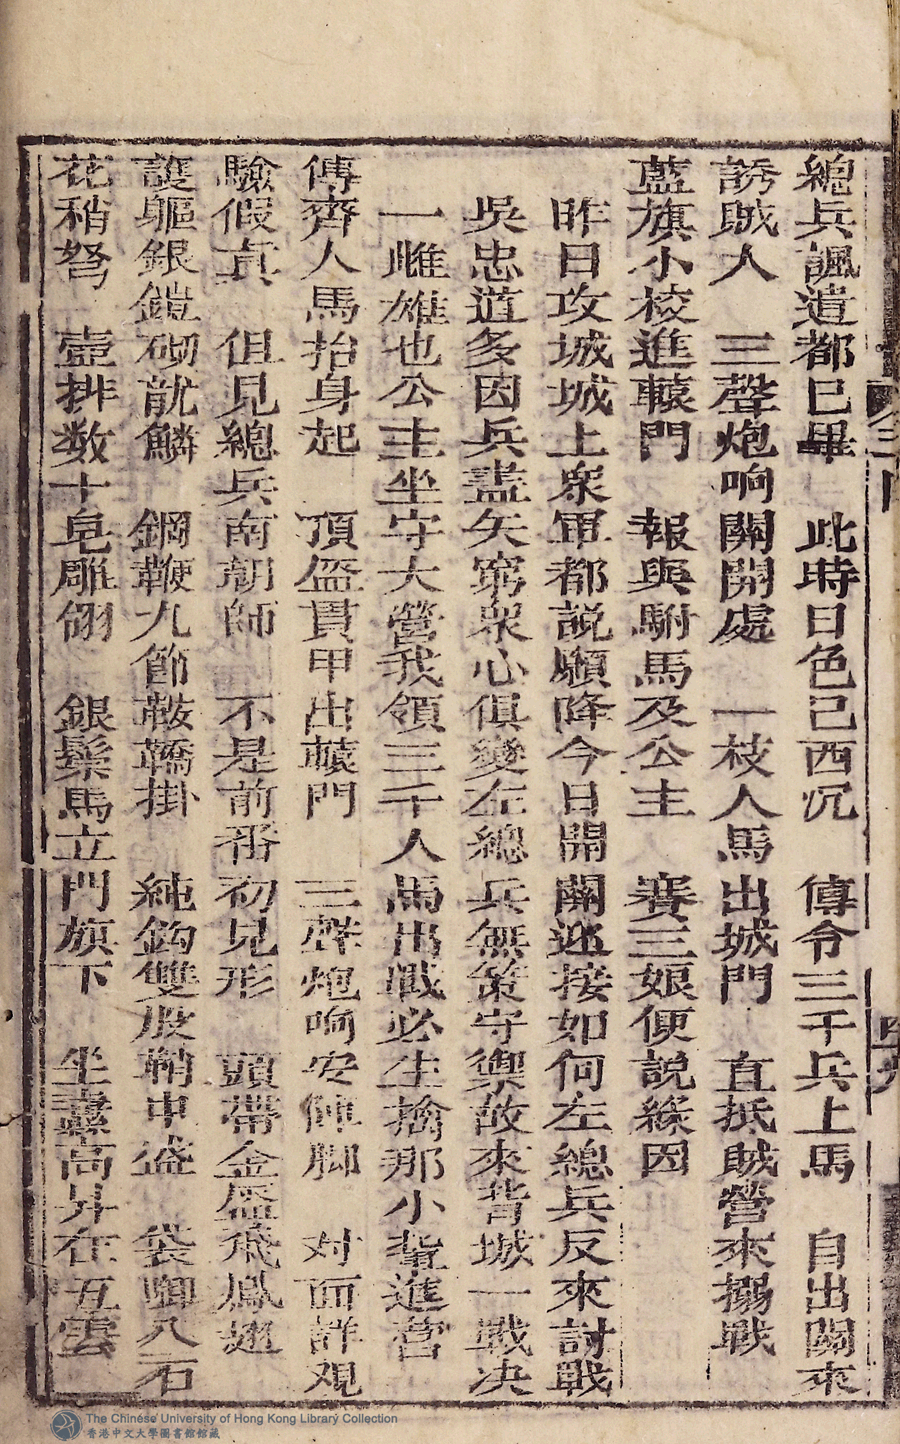 總兵諷遣都巳畢　此時日色已西沉　傳令三千兵上馬　自出關來
誘賊人　三聲炮响關開處　一枝人馬出城門　直抵賊營來搦戰
藍旗小校進轅門　報與駙馬及公主　賽三娘便説緣因
昨日攻城城上衆軍都説願降今日開關迯接如何左總兵反來討戰
吳忠道多因兵盡矢窮衆心俱變左總兵無策守禦故來背城一戰决
一雌雄也公主坐守大營我領三千人馬出戰必生擒那小輩進营
傳齊人馬抬身起　頂盔貫甲出轅門　三聲炮响安陣脚　对面詳观
驗假真　但見總兵南朝師　不是前番初見形　頭帶金盔飛鳳翅
護軀銀鎧砌龍鱗　鋼鞭九節鞍轎掛　純鈎雙股鞘中盛　袋啣八石
花稍弩　壺排数十皂雕翎　銀鬃馬立門旗下　坐纛高昇在五雲
The Chinese University of Hong Kong Library Collection
香港中文大學圖書館館藏